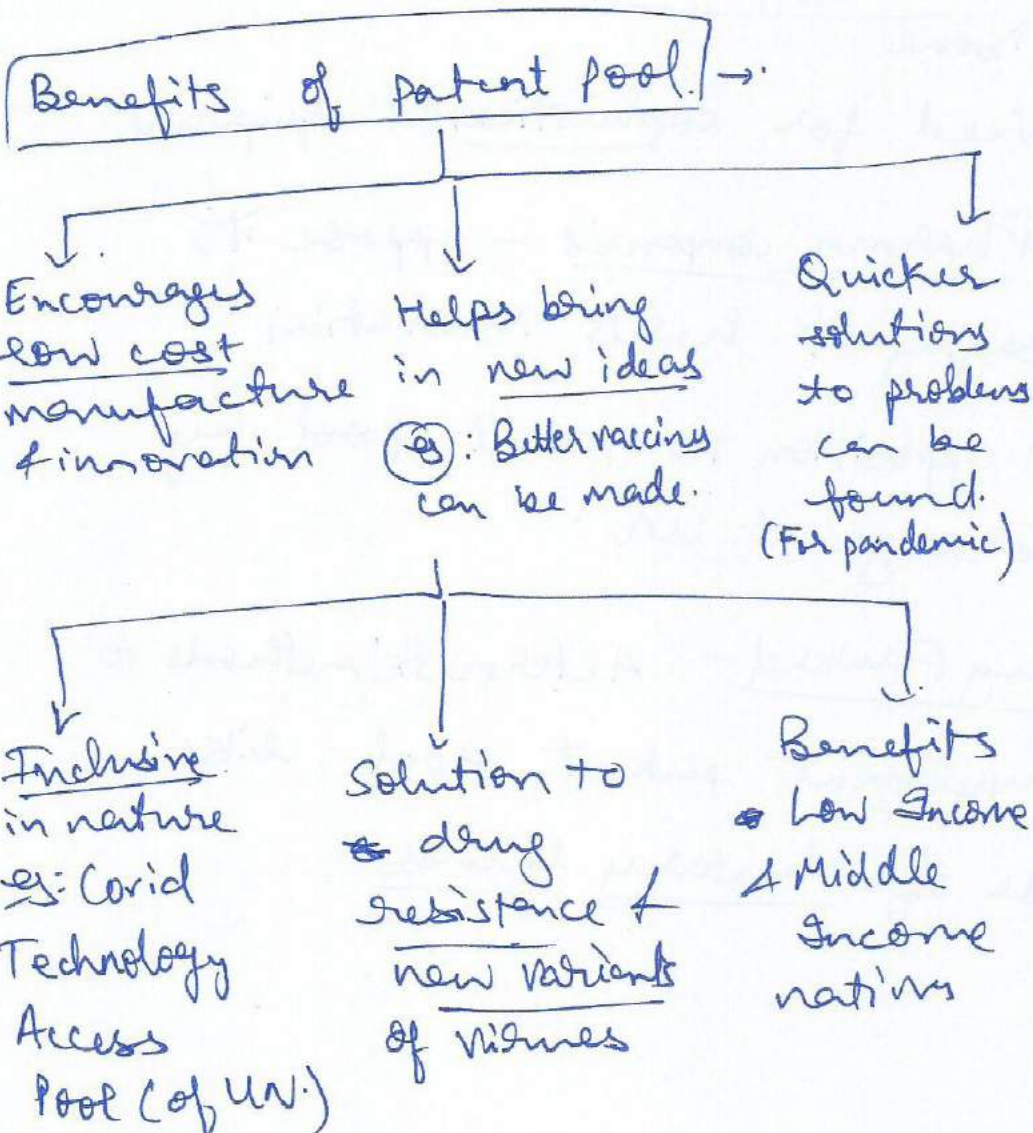 Benefits of patent pool →
Encourages
low cost
manufacture
& innovation
Helps bring
in new ideas
eg: Better vaccines
can be made.
Quicker
solutions
to problems
can be
found.
(For pandemic)
Inclusive
in nature
eg: Covid
Technology
Access
Pool (of UN.)
Solution to
drug
resistance &
new variants
of viruses
Benefits
Low Income
& Middle
Income
nations